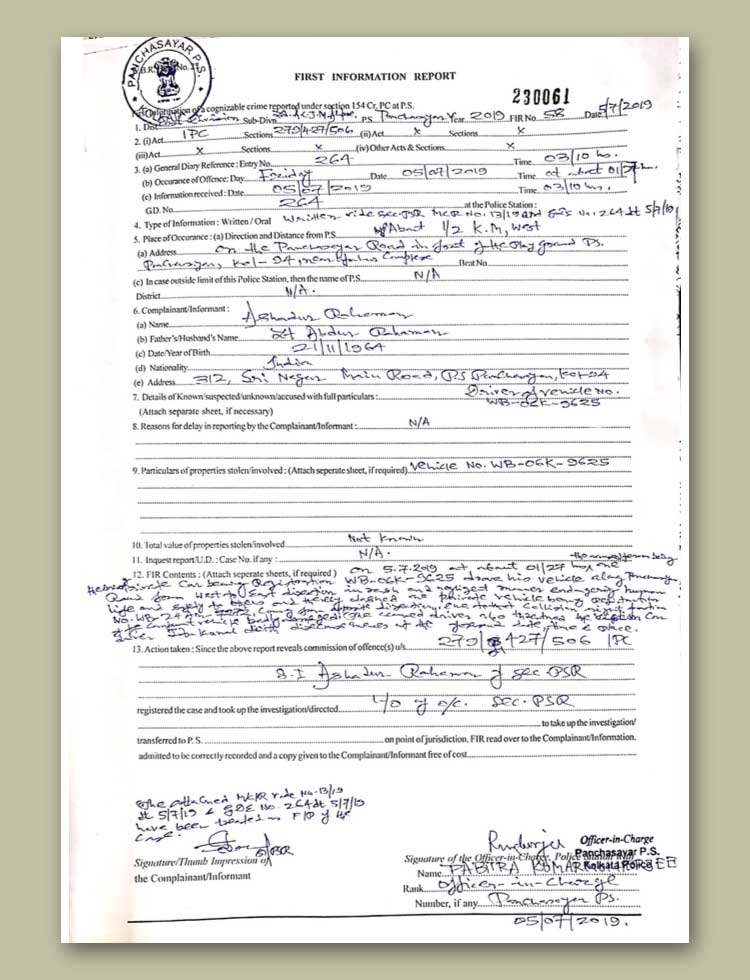 PANCHASAYAR P.S.
FIRST INFORMATION REPORT
230061
First Information of a cognizable crime reported under section 154 Cr. PC at P.S.
1. Dist. Division Sub-Divn P.S. Panchasayar Year 2019 FIR No. 58 Date 5/7/2019
2. (i) Act IPC Sections 279/427/506 (ii) Act X Sections X
(iii) Act X Sections X (iv) Other Acts & Sections X
3. (a) General Diary Reference : Entry No. 264 Time 03/10 hrs.
(b) Occurance of Offence: Day Friday Date 05/07/2019 Time at about 01/27 hrs.
(c) Information received : Date 05/07/2019 Time 03/10 hrs.
G.D. No. 264 at the Police Station :
4. Type of Information : Written / Oral Written vide Sec-PSR MCR No. 13/19 and GDE No. 264 dt 5/7/19
5. Place of Occurance : (a) Direction and Distance from P.S. About 1/2 K.M, West
(a) Address on the Panchasayar Road in front of the Play ground PS.
Panchasayar, Kol-94, near Complex Beat No.
(c) In case outside limit of this Police Station, then the name of P.S. N/A
District N/A.
6. Complainant/Informant :
(a) Name Ashadur Rahaman
(b) Father's/Husband's Name Lt Abdur Rahaman
(c) Date/Year of Birth 21/11/1964
(d) Nationality India
(e) Address 312, Sri Nagar Main Road, PS Panchasayar, Kol-94
7. Details of Known/suspected/unknown/accused with full particulars : Driver of vehicle No.
(Attach separate sheet, if necessary) WB-06K-9625
8. Reasons for delay in reporting by the Complainant/Informant : N/A
9. Particulars of properties stolen/involved : (Attach seperate sheet, if required) Vehicle No. WB-06K-9625
10. Total value of properties stolen/involved Not Known
11. Inquest report/U.D. : Case No. if any : N/A.
the accused person being
12. FIR Contents : (Attach seperate sheets, if required) on 5.7.2019 at about 01/27 hrs one
Private Car bearing Registration WB-06K-9625 drove his vehicle along Panchasayar
Road from West to East direction in rash and negligent manner endangering human
life and safety to others and thereby dashed one private vehicle bearing registration
No. WB- coming from opposite direction, due to that collision right portion
of the complainant vehicle badly damaged. The accused driver also threatned the
at the place.
13. Action taken : Since the above report reveals commission of offence(s) u/s. 279/427/506 IPC
S.I Ashadur Rahaman of Sec. PSR
registered the case and took up the investigation/directed I/O of o/c. Sec. PSR
to take up the investigation/
transferred to P. S. on point of jurisdiction. FIR read over to the Complainant/Information.
admitted to be correctly recorded and a copy given to the Complainant/Informant free of cost
The attached MCR vide No. 13/19
dt 5/7/19 & GDE No. 264 dt 5/7/19
have been treated as FIR of the
Case.
Signature/Thumb Impression of
the Complainant/Informant
Officer-in-Charge
Panchasayar P.S.
Kolkata Police
Signature of the Officer-in-Charge, Police Station with
Name PABITRA KUMAR
Rank Officer-in-Charge
Number, if any Panchasayar PS.
05/07/2019.